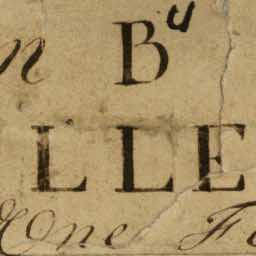 n Bu
LLE
One F